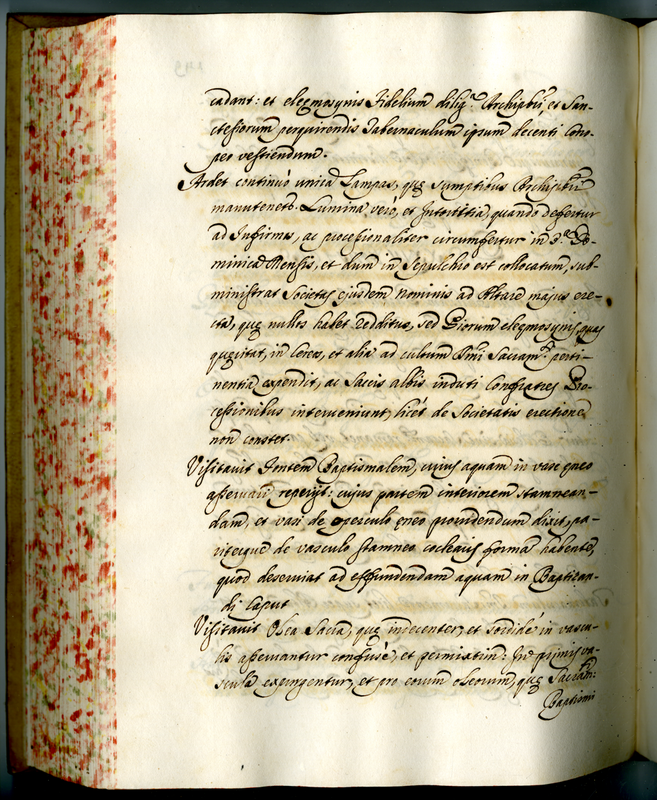 cadant: et eleemosynis Fidelium dilig.ᵃ Archipbri, et San-
ctesiorum perquirendis Tabernaculum ipsum decenti Cono-
peo vestiendum.
Ardet continuò unica Lampas, quę sumptibus Archipbri
manutenetr. Lumina verò, et Intortitia, quando defertur
ad Infirmos, ac processionaliter circumfertur in 3.ᵃ Do-
minica Mensis, et dum in Sepulchro est collocatum, sub-
ministrat Societas ejusdem nominis ad Altare majus ere-
cta, quę nullos habet redditus, sed Piorum eleemosynis, quas
quęritat, in Cereos, et alia ad cultum Smi Sacramᵗⁱ perti-
nentia expendit, ac Saccis albis induti Confratres Pro-
cessionibus interveniunt, licét de Societatis erectione
non constet.
Visitavit Fontem Baptismalem, cujus aquam in vase ęneo
asservari reperijt: cujus partem interiorem stamnean-
dam, et vasi de operculo ęneo providendum dixit, pa-
riterque de vasculo stamneo coclearis formā habente,
quod deserviat ad effundendam aquam in Baptizan-
di Caput
Visitavit Olea Sacra, quę indecenter, et sordidè in vascu-
lis asservantur confusè, et permixtim: In primis va-
scula expurgentur, et pro eorum oleorum, quę Sacramᵗⁱ:
Baptismi